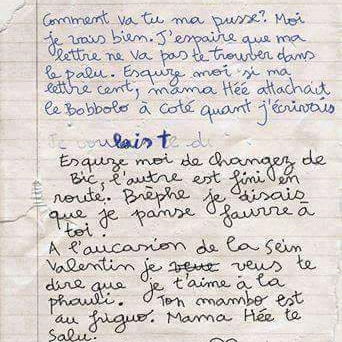 Comment va tu ma pusse? Moi
je vais bien. J'espaire que ma
lettre ne va pas te trouber dans
le palu. Esquze moi si ma
lettre cent, mama Hée attachait
le Bobbolo à Coté quant j'écrivais
Je voulais t de
Esquze moi de changez de
Bic, l'autre est fini en
route. Brèphe je disais
que je panse faurre à
toi!
A l'aucasion de la Sein
Valentin je veus te
dire que je t'aime à la
phauli. Ton mambo est
au friguo. Mama Hée te
salu.